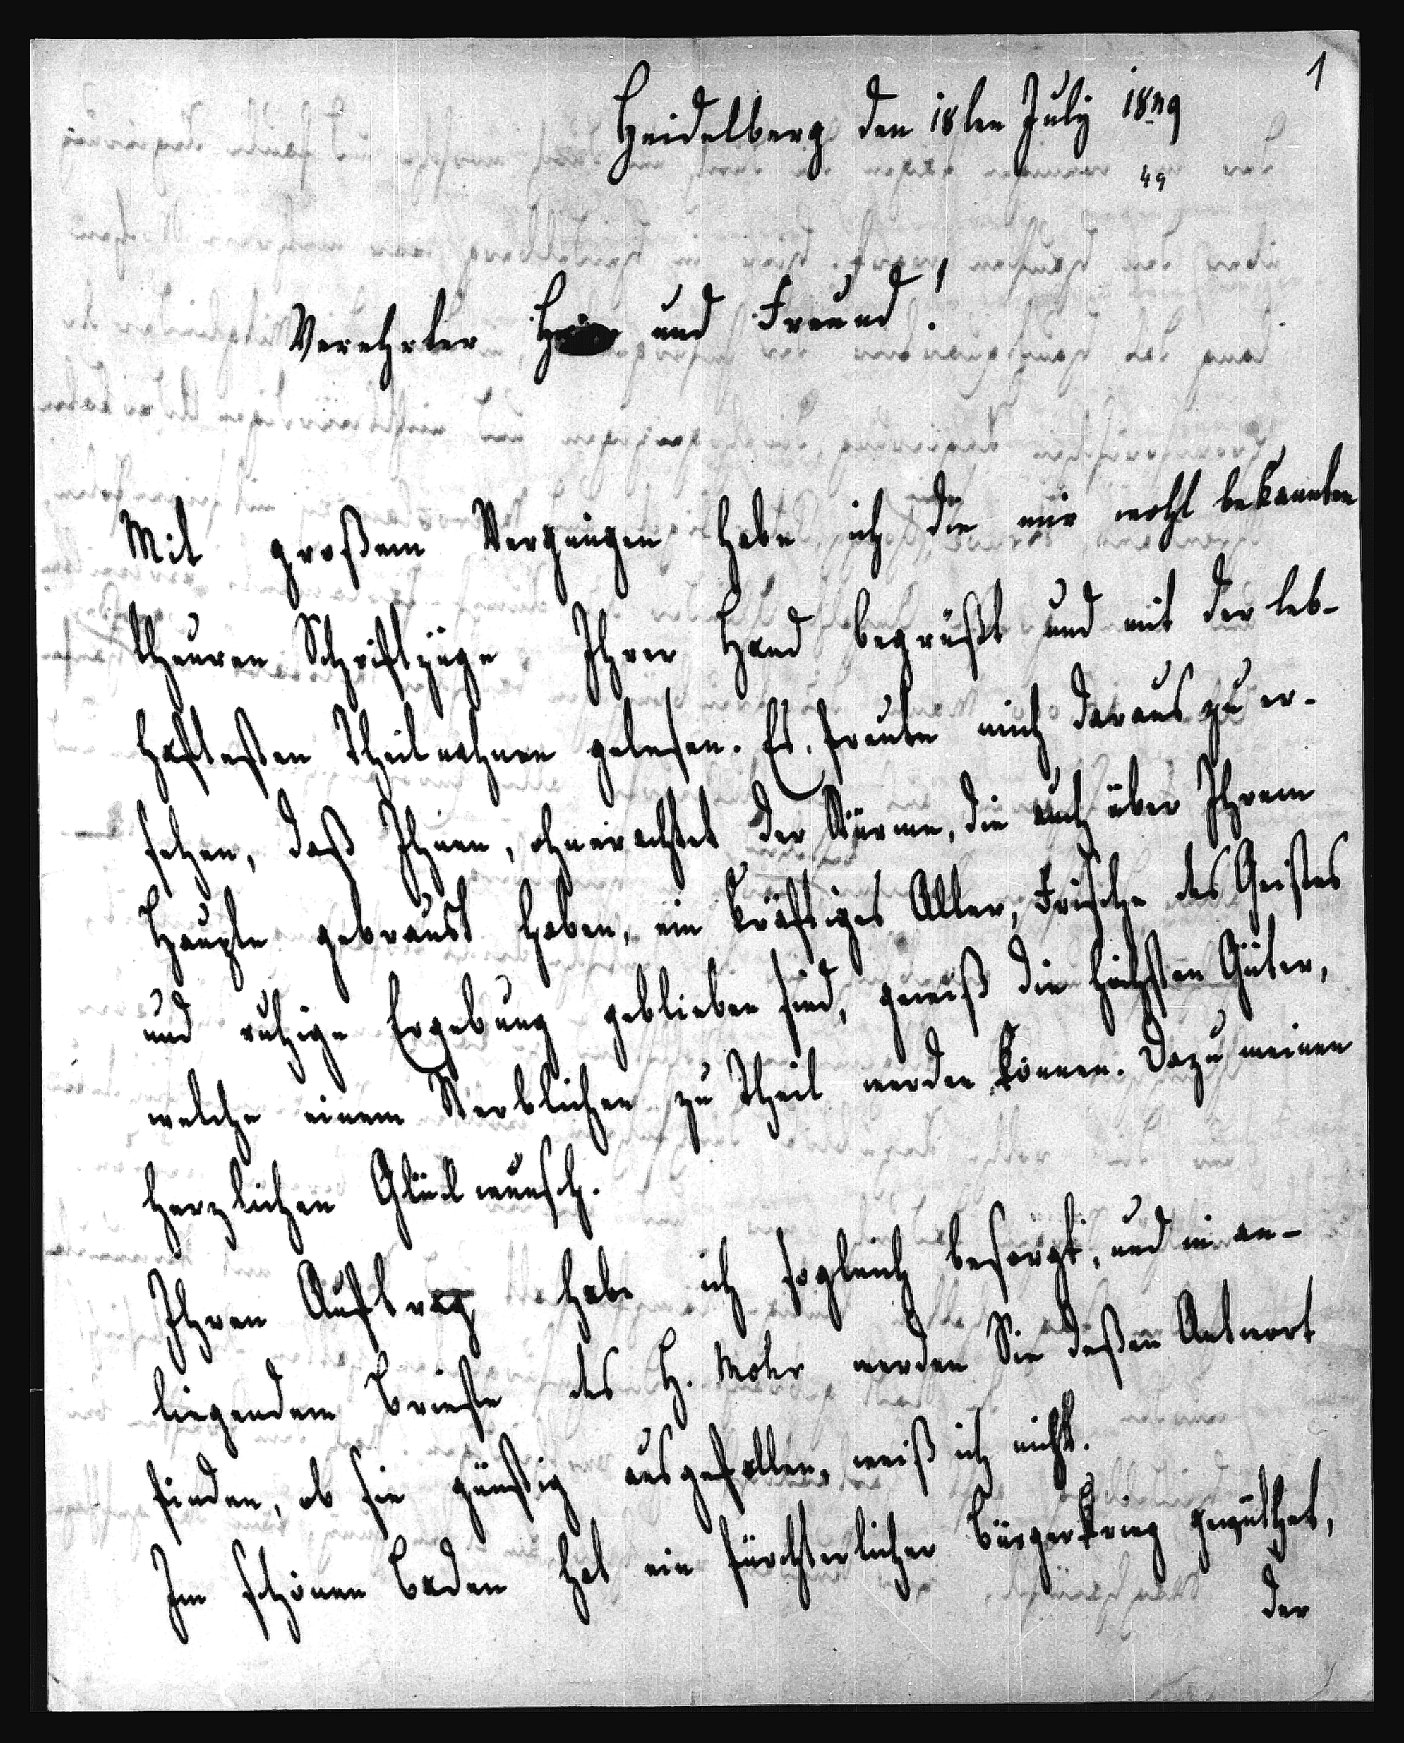 1
Heidelberg den 18ten July 1849
49
Verehrter Herr und Freund!
Mit großem Vergnügen habe ich die mir wohl bekannten
theuren Schriftzüge Ihrer Hand begrüßt und mit der leb-
haftesten Theilnahme gelesen. Es freute mich daraus zu er-
sehen, daß Ihnen, ohnerachtet der Stürme, die auch über Ihrem
Haupte gebraust haben, ein kräftiges Alter, Frische des Geistes
und ruhige Ergebung geblieben sind, gewiß die höchsten Güter,
welche einem Sterblichen zu Theil werden können. Dazu meinen
herzlichen Glückwunsch.
Ihren Auftrag habe ich sogleich besorgt, und in an-
liegendem Briefe des H. Mohr werden Sie deßen Antwort
finden, ob sie günstig ausgefallen, weiß ich nicht.
Im schönen Baden hat ein fürchterlicher Bürgerkrieg gewüthet,
der